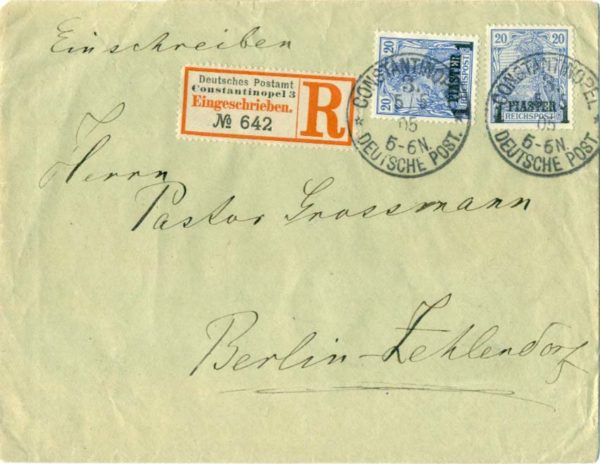 Einschreiben
Deutsches Postamt
Constantinopel 3
Eingeschrieben.
№ 642
R
20
20
1 PIASTER 1
REICHSPOST
20
20
1 PIASTER
REICHSPOST
* CONSTANTINOPEL *
05
5-6N.
DEUTSCHE POST.
* CONSTANTINOPEL *
05
5-6N.
DEUTSCHE POST.
Herrn
Pastor Grossmann
Berlin-Zehlendorf